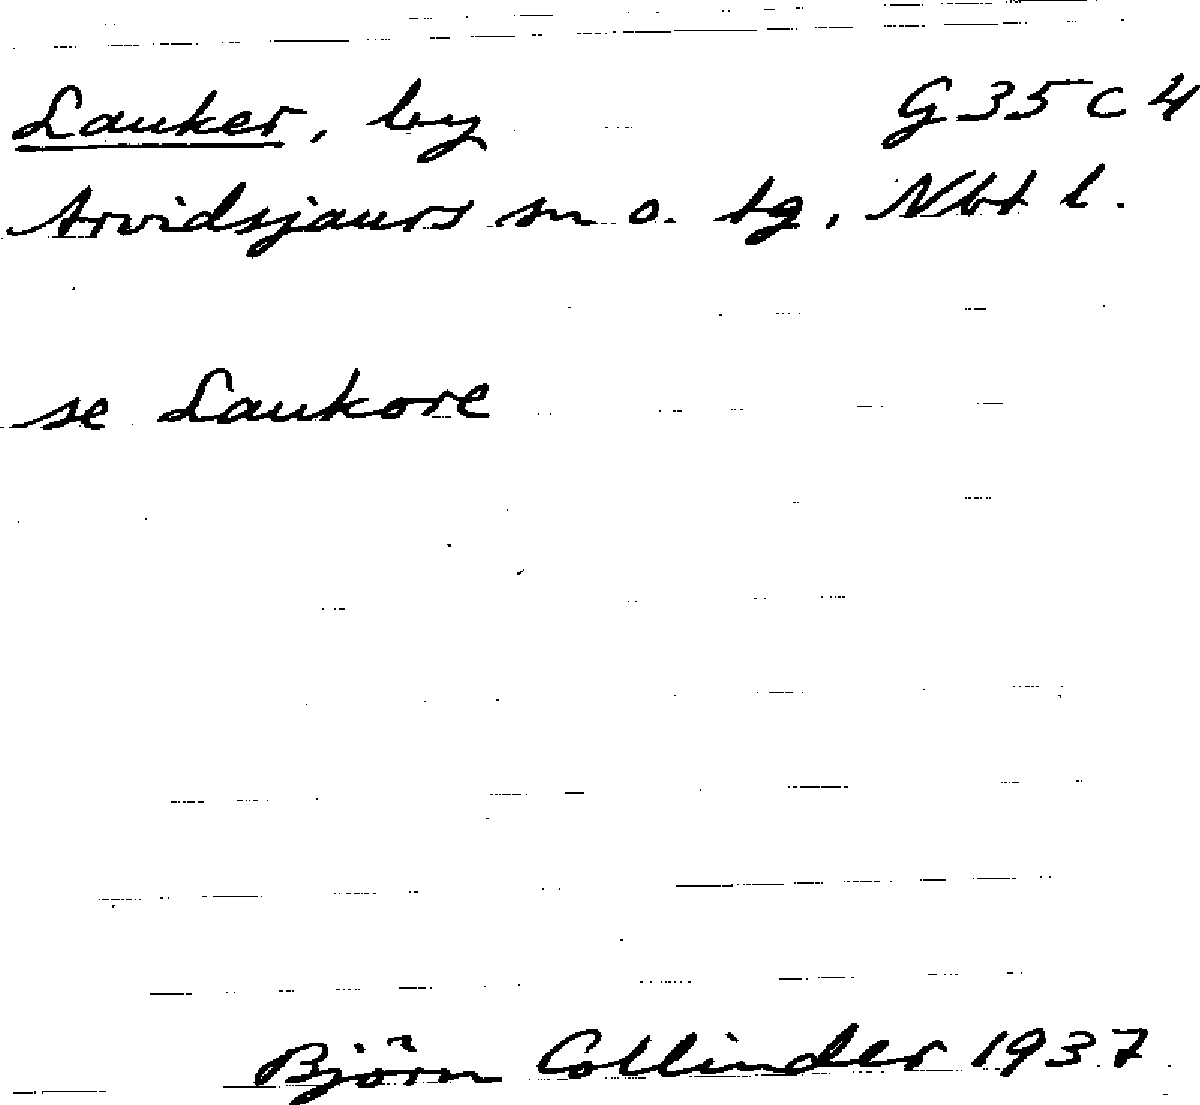 Lauker, by G35C4
Arvidsjaurs sn o. tg, Nbt l.
se Laukore
Björn Collinder 1937